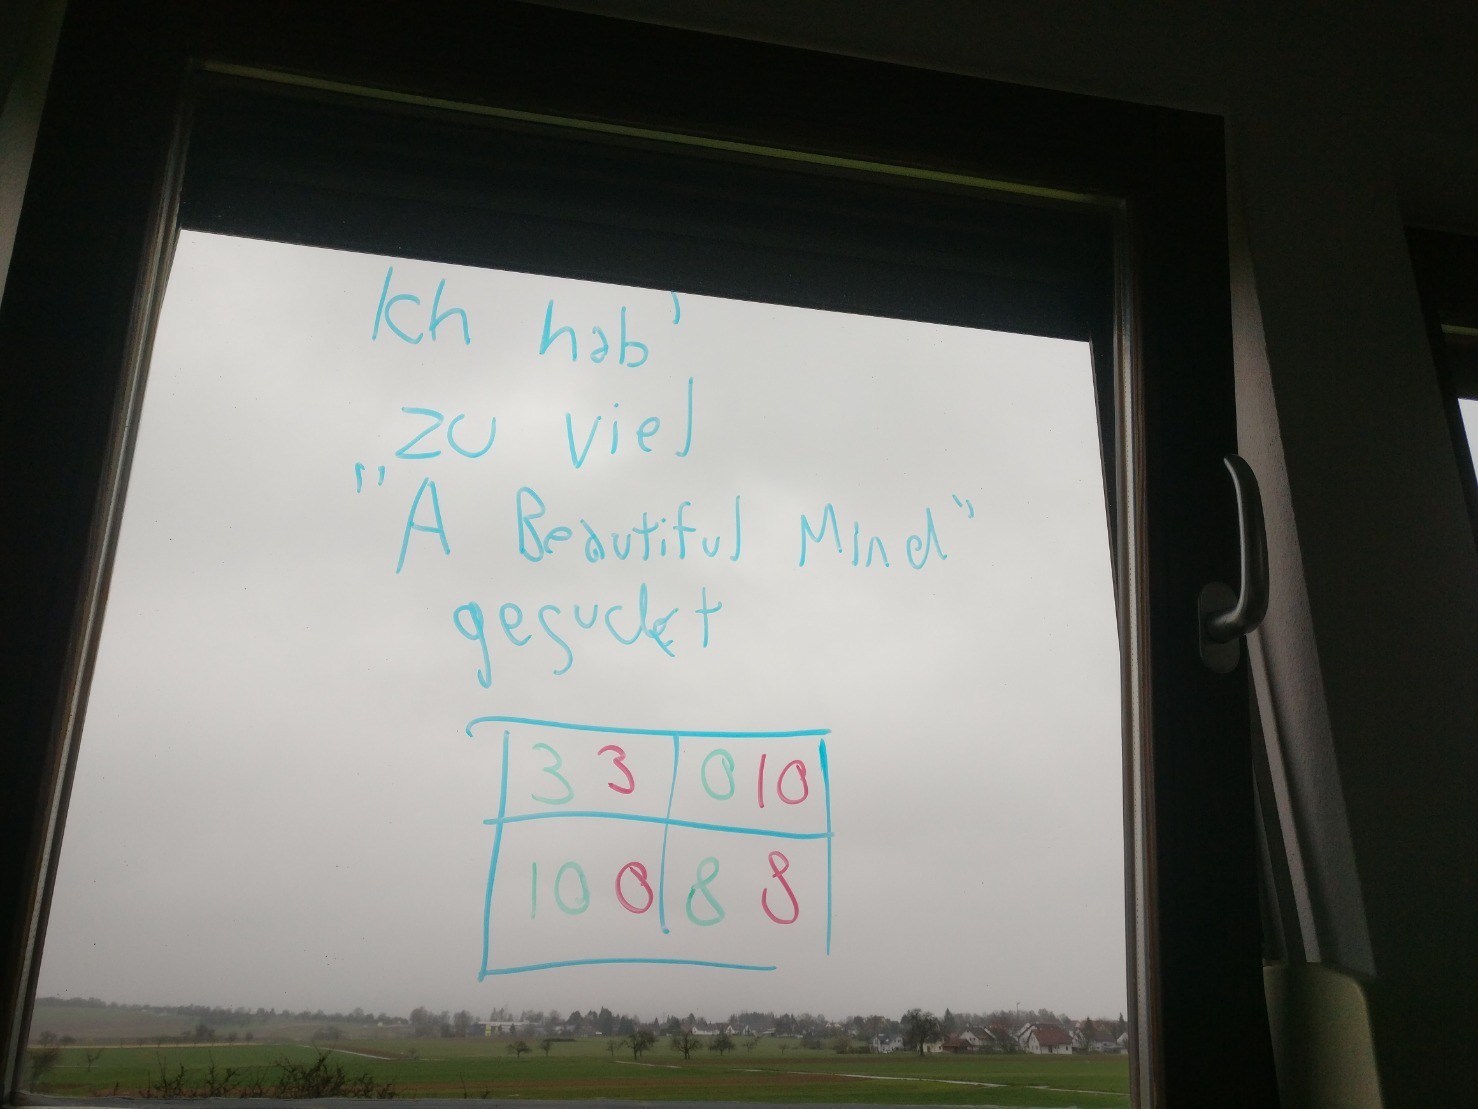 Ich hab'
zu viel
"A Beautiful Mind"
gesuckt
3 3 0 10
10 0 8 8